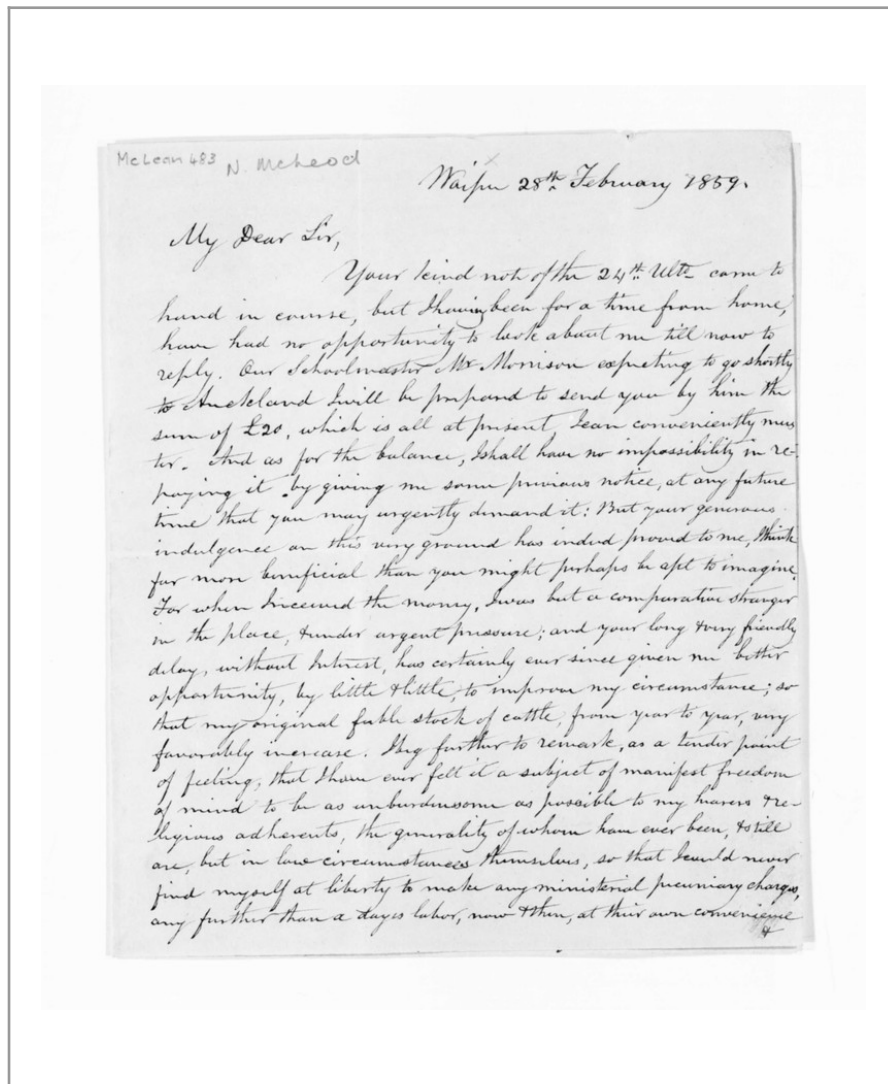 McLean 483 N. McLeod
Waipu 28th February 1859.
My Dear Sir,
Your kind note of the 24th Ulto came to
hand in course, but I having been for a time from home,
have had no opportunity to look about me till now to
reply. Our Schoolmaster Mr Morrison expecting to go shortly
to Auckland I will be prepared to send you by him the
sum of £20, which is all at present, I can conveniently mus
ter. And as for the balance, I shall have no impossibility in re-
paying it by giving me some previous notice, at any future
time that you may urgently demand it: But your generous
indulgence on this very ground has indeed proved to me, I think
far more beneficial than you might perhaps be apt to imagine.
For when I received the money, I was but a comparative stranger
in the place, & under urgent pressure; and your long & very friendly
delay, without Interest, has certainly ever since given me better
opportunity, by little & little, to improve my circumstance; so
that my original feeble stock of cattle, from year to year, very
favorably increase. I beg further to remark, as a tender point
of feeling, that I have ever felt it a subject of manifest freedom
of mind to be as unburdensome as possible to my hearers & re-
ligious adherents, the generality of whom have ever been, & still
are, but in low circumstances themselves, so that I could never
find myself at liberty to make any ministerial pecuniary charges,
any further than a day's labor, now & then, at their own convenience
&